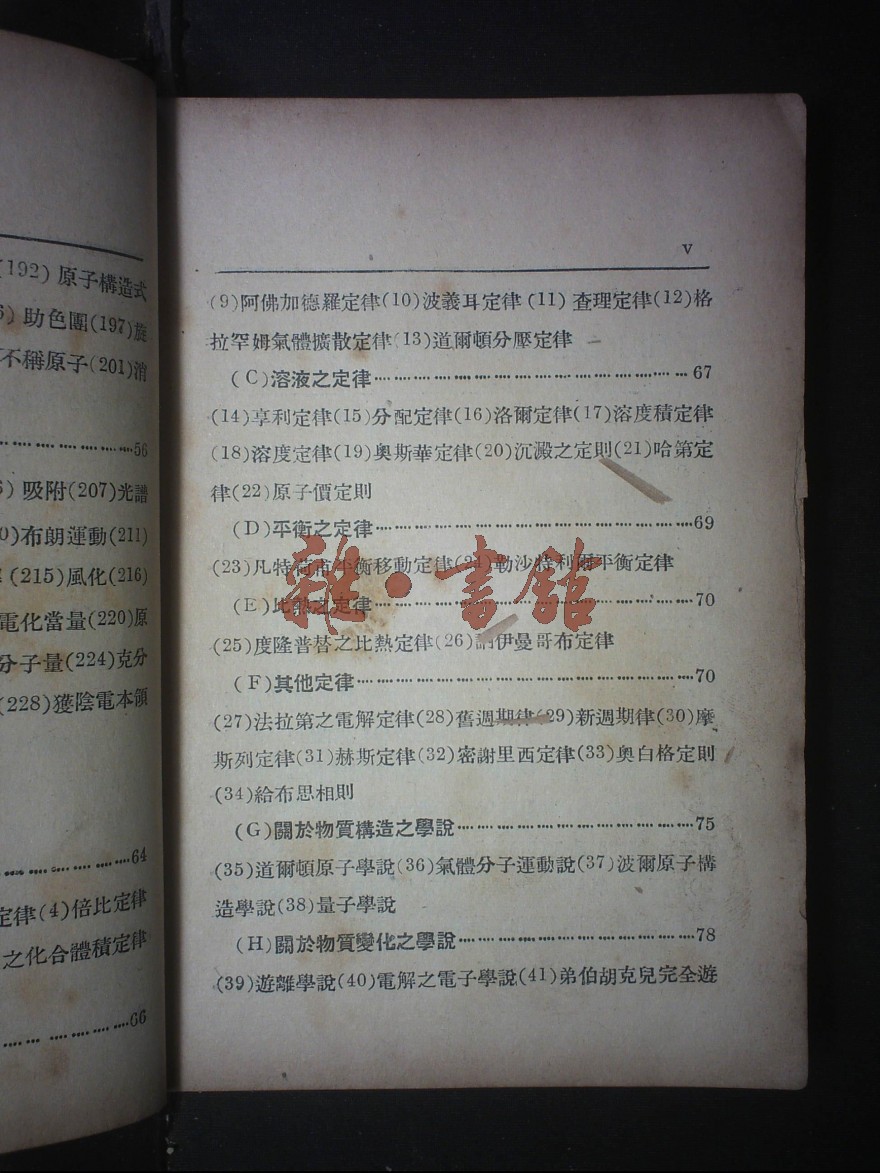 (192) 原子構造式
6) 助色團(197)旋
不稱原子(201)消
························56
6) 吸附(207)光譜
0)布朗運動(211)
(215)風化(216)
電化當量(220)原
分子量(224)克分
(228)獲陰電本領
························64
定律(4)倍比定律
之化合體積定律
························66
v
(9)阿佛加德羅定律(10)波義耳定律(11) 查理定律(12)格
拉罕姆氣體擴散定律(13)道爾頓分壓定律
(C)溶液之定律························67
(14)享利定律(15)分配定律(16)洛爾定律(17)溶度積定律
(18)溶度定律(19)奧斯華定律(20)沉澱之定則(21)哈第定
律(22)原子價定則
(D)平衡之定律························69
(23)凡特荷甫平衡移動定律(24)勒沙特利爾平衡定律
(E)比熱之定律························70
(25)度隆普替之比熱定律(26)訥伊曼哥布定律
(F)其他定律························70
(27)法拉第之電解定律(28)舊週期律(29)新週期律(30)摩
斯列定律(31)赫斯定律(32)密謝里西定律(33)奧白格定則
(34)給布思相則
(G)關於物質構造之學說························75
(35)道爾頓原子學說(36)氣體分子運動說(37)波爾原子構
造學說(38)量子學說
(H)關於物質變化之學說························78
(39)遊離學說(40)電解之電子學說(41)弟伯胡克兒完全遊
雜·書館